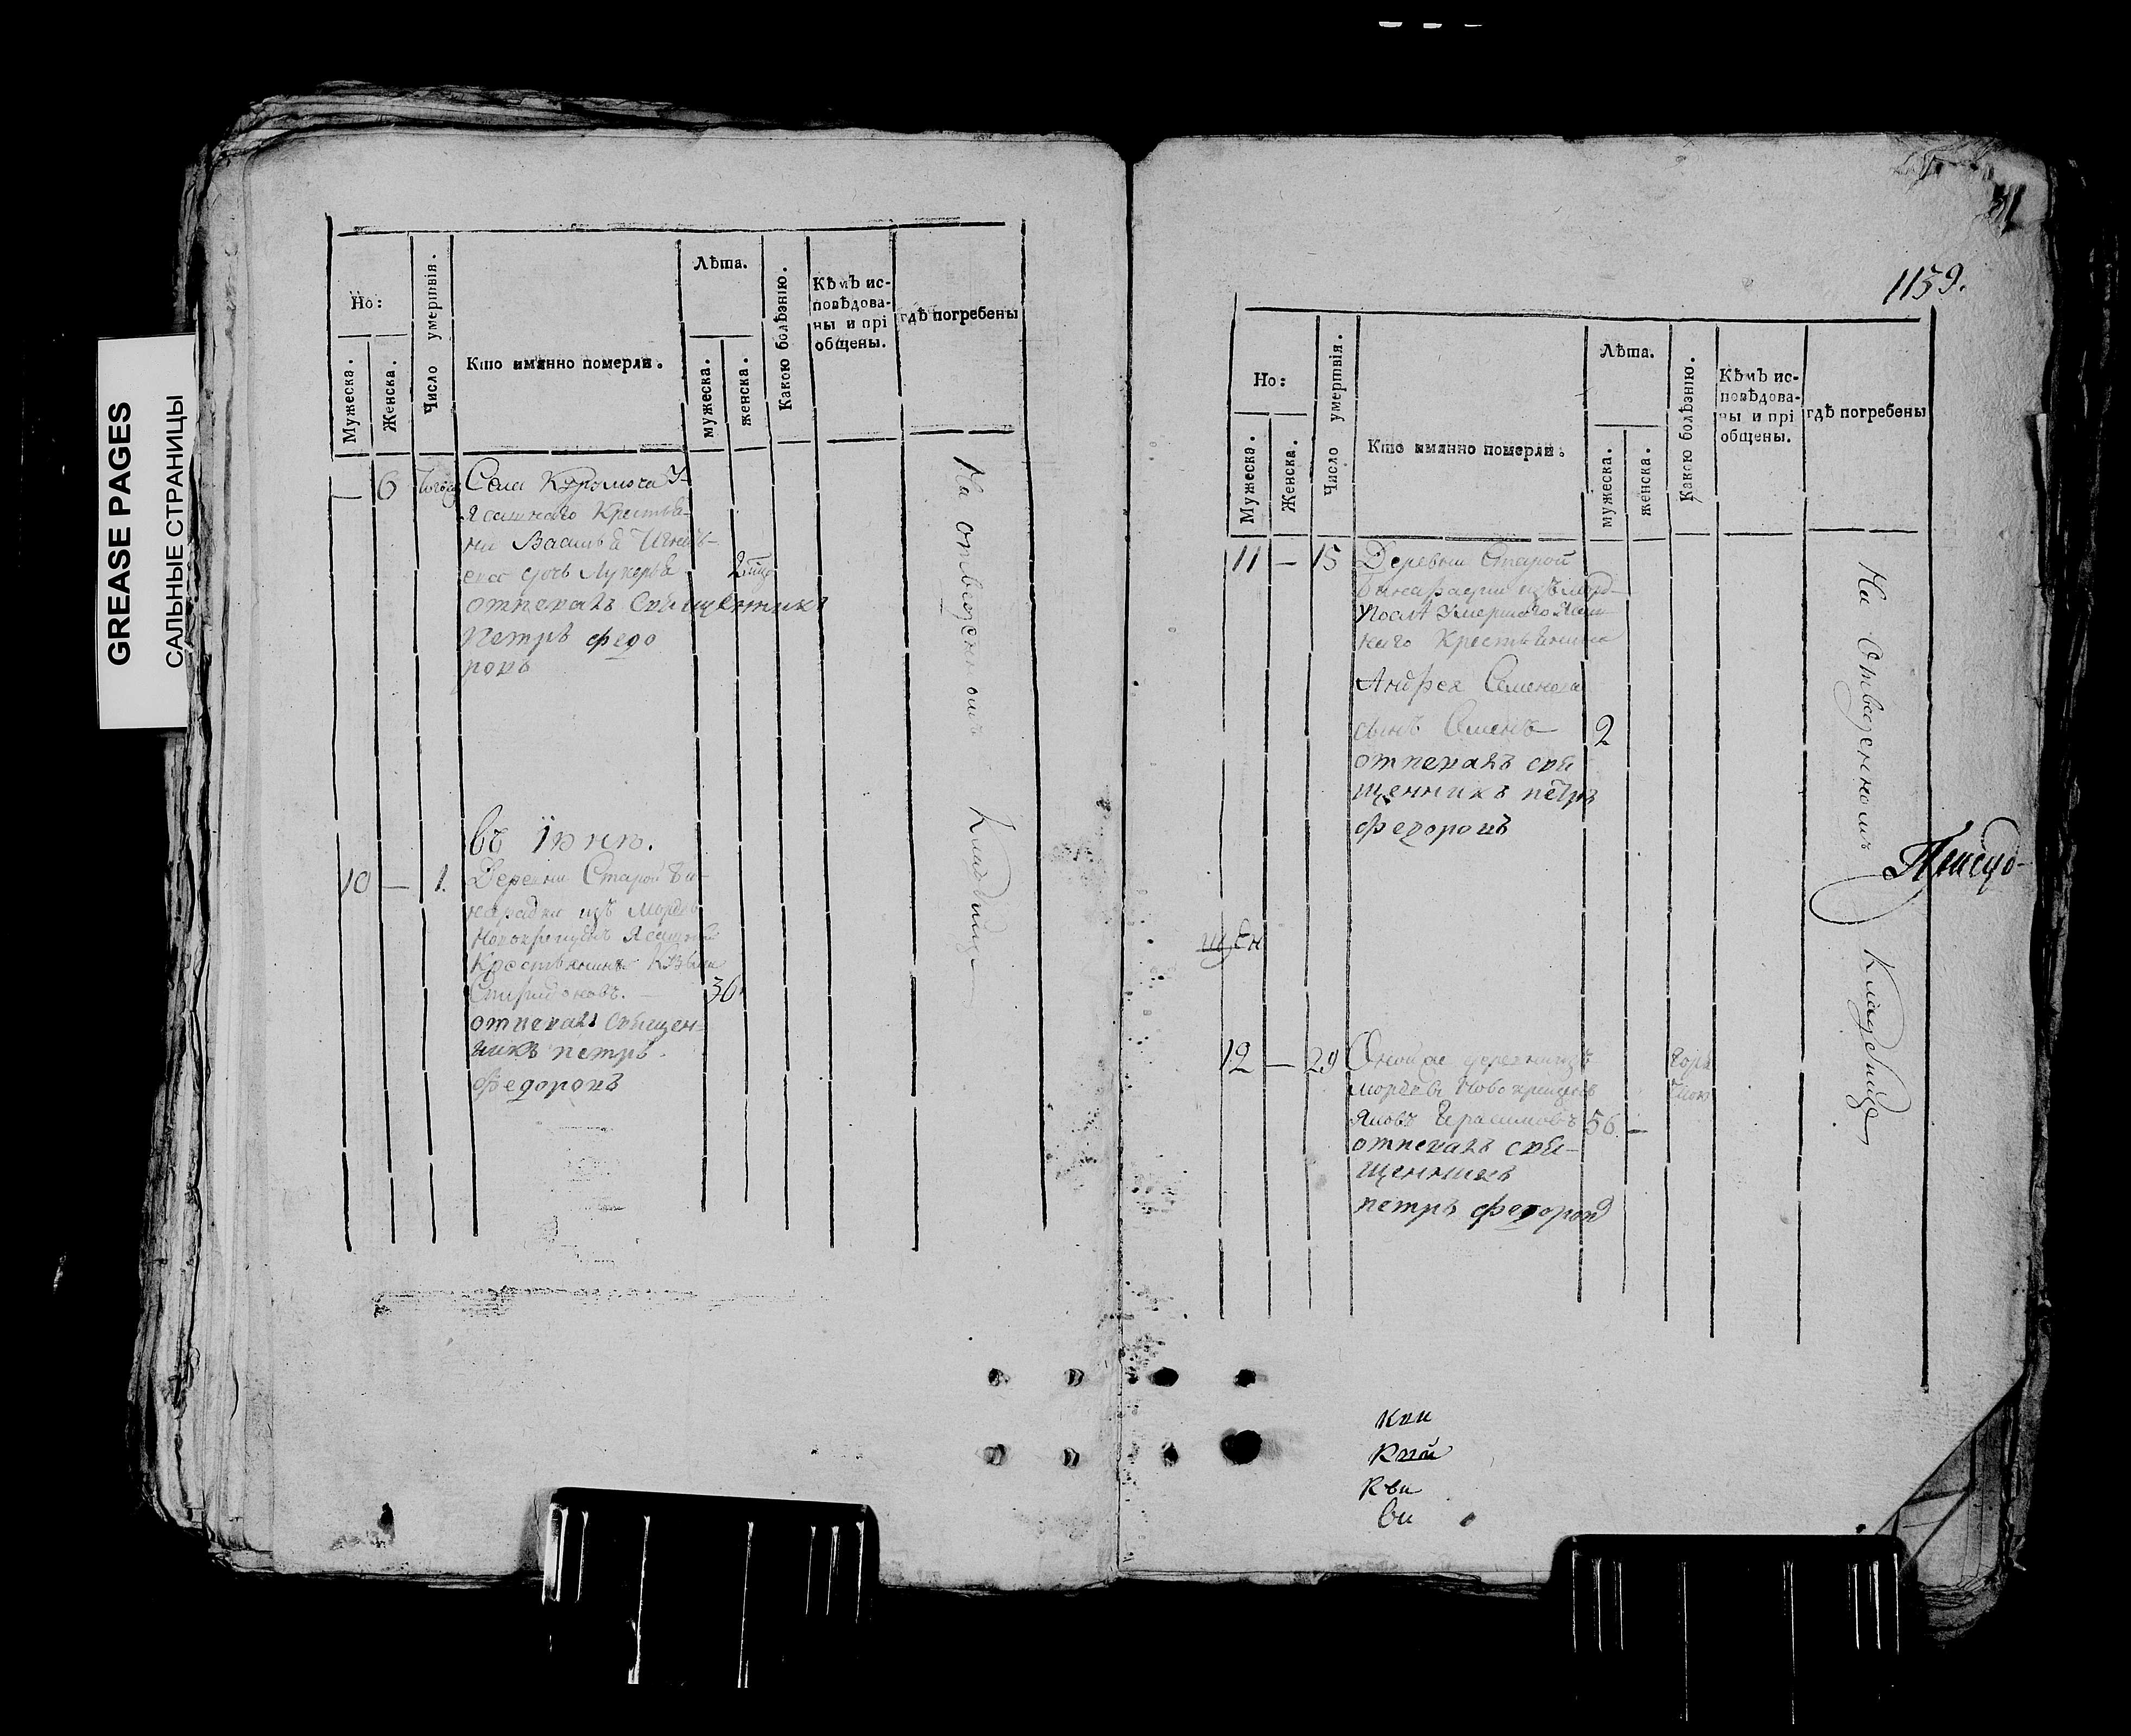 GREASE PAGES
САЛЬНЫЕ СТРАНИЦЫ
Но:
Мужеска.
Женска.
Число умертвія.
Кто имянно померли.
Лѣта.
мужеска.
женска.
Какою болѣзнію.
Кѣмъ ис-
повѣдова-
ны и прі
общены.
гдѣ погребены
— 6
Села
Ясашнаго Крестья-
на Василья
дочь Лукерья 2
отпевалъ священникъ
Петръ федо
ровъ
На отведенномъ Кладбище
въ іюне.
10 — 1.
Деревни Старой Би-
нарадки изъ Мордвы
Новокрещенъ Ясашной
Крестьянинъ Козьма
Спиридоновъ. — 36
отпевалъ священ-
никъ петръ
федоровъ
1159.
Но:
Мужеска.
Женска.
Число умертвія.
Кто имянно померли.
Лѣта.
мужеска.
женска.
Какою болѣзнію.
Кѣмъ ис-
повѣдова-
ны и прі
общены.
гдѣ погребены
11 — 15
Деревни Старой
Бинарадки изъ морд-
После Умершаго Яса
наго Крестьянина
Андрея Семенова
сынъ Семенъ 2
отпевалъ свя
щенникъ петръ
федоровъ
На Отведенномъ Кладбище
щен
12 — 29
Оной же деревни изъ
мордвы Новокрещенъ
Яковъ Герасимовъ 56 —
отпевалъ свя-
щенникъ
петръ федоровъ
горя
чкою
кви
Кви
ви